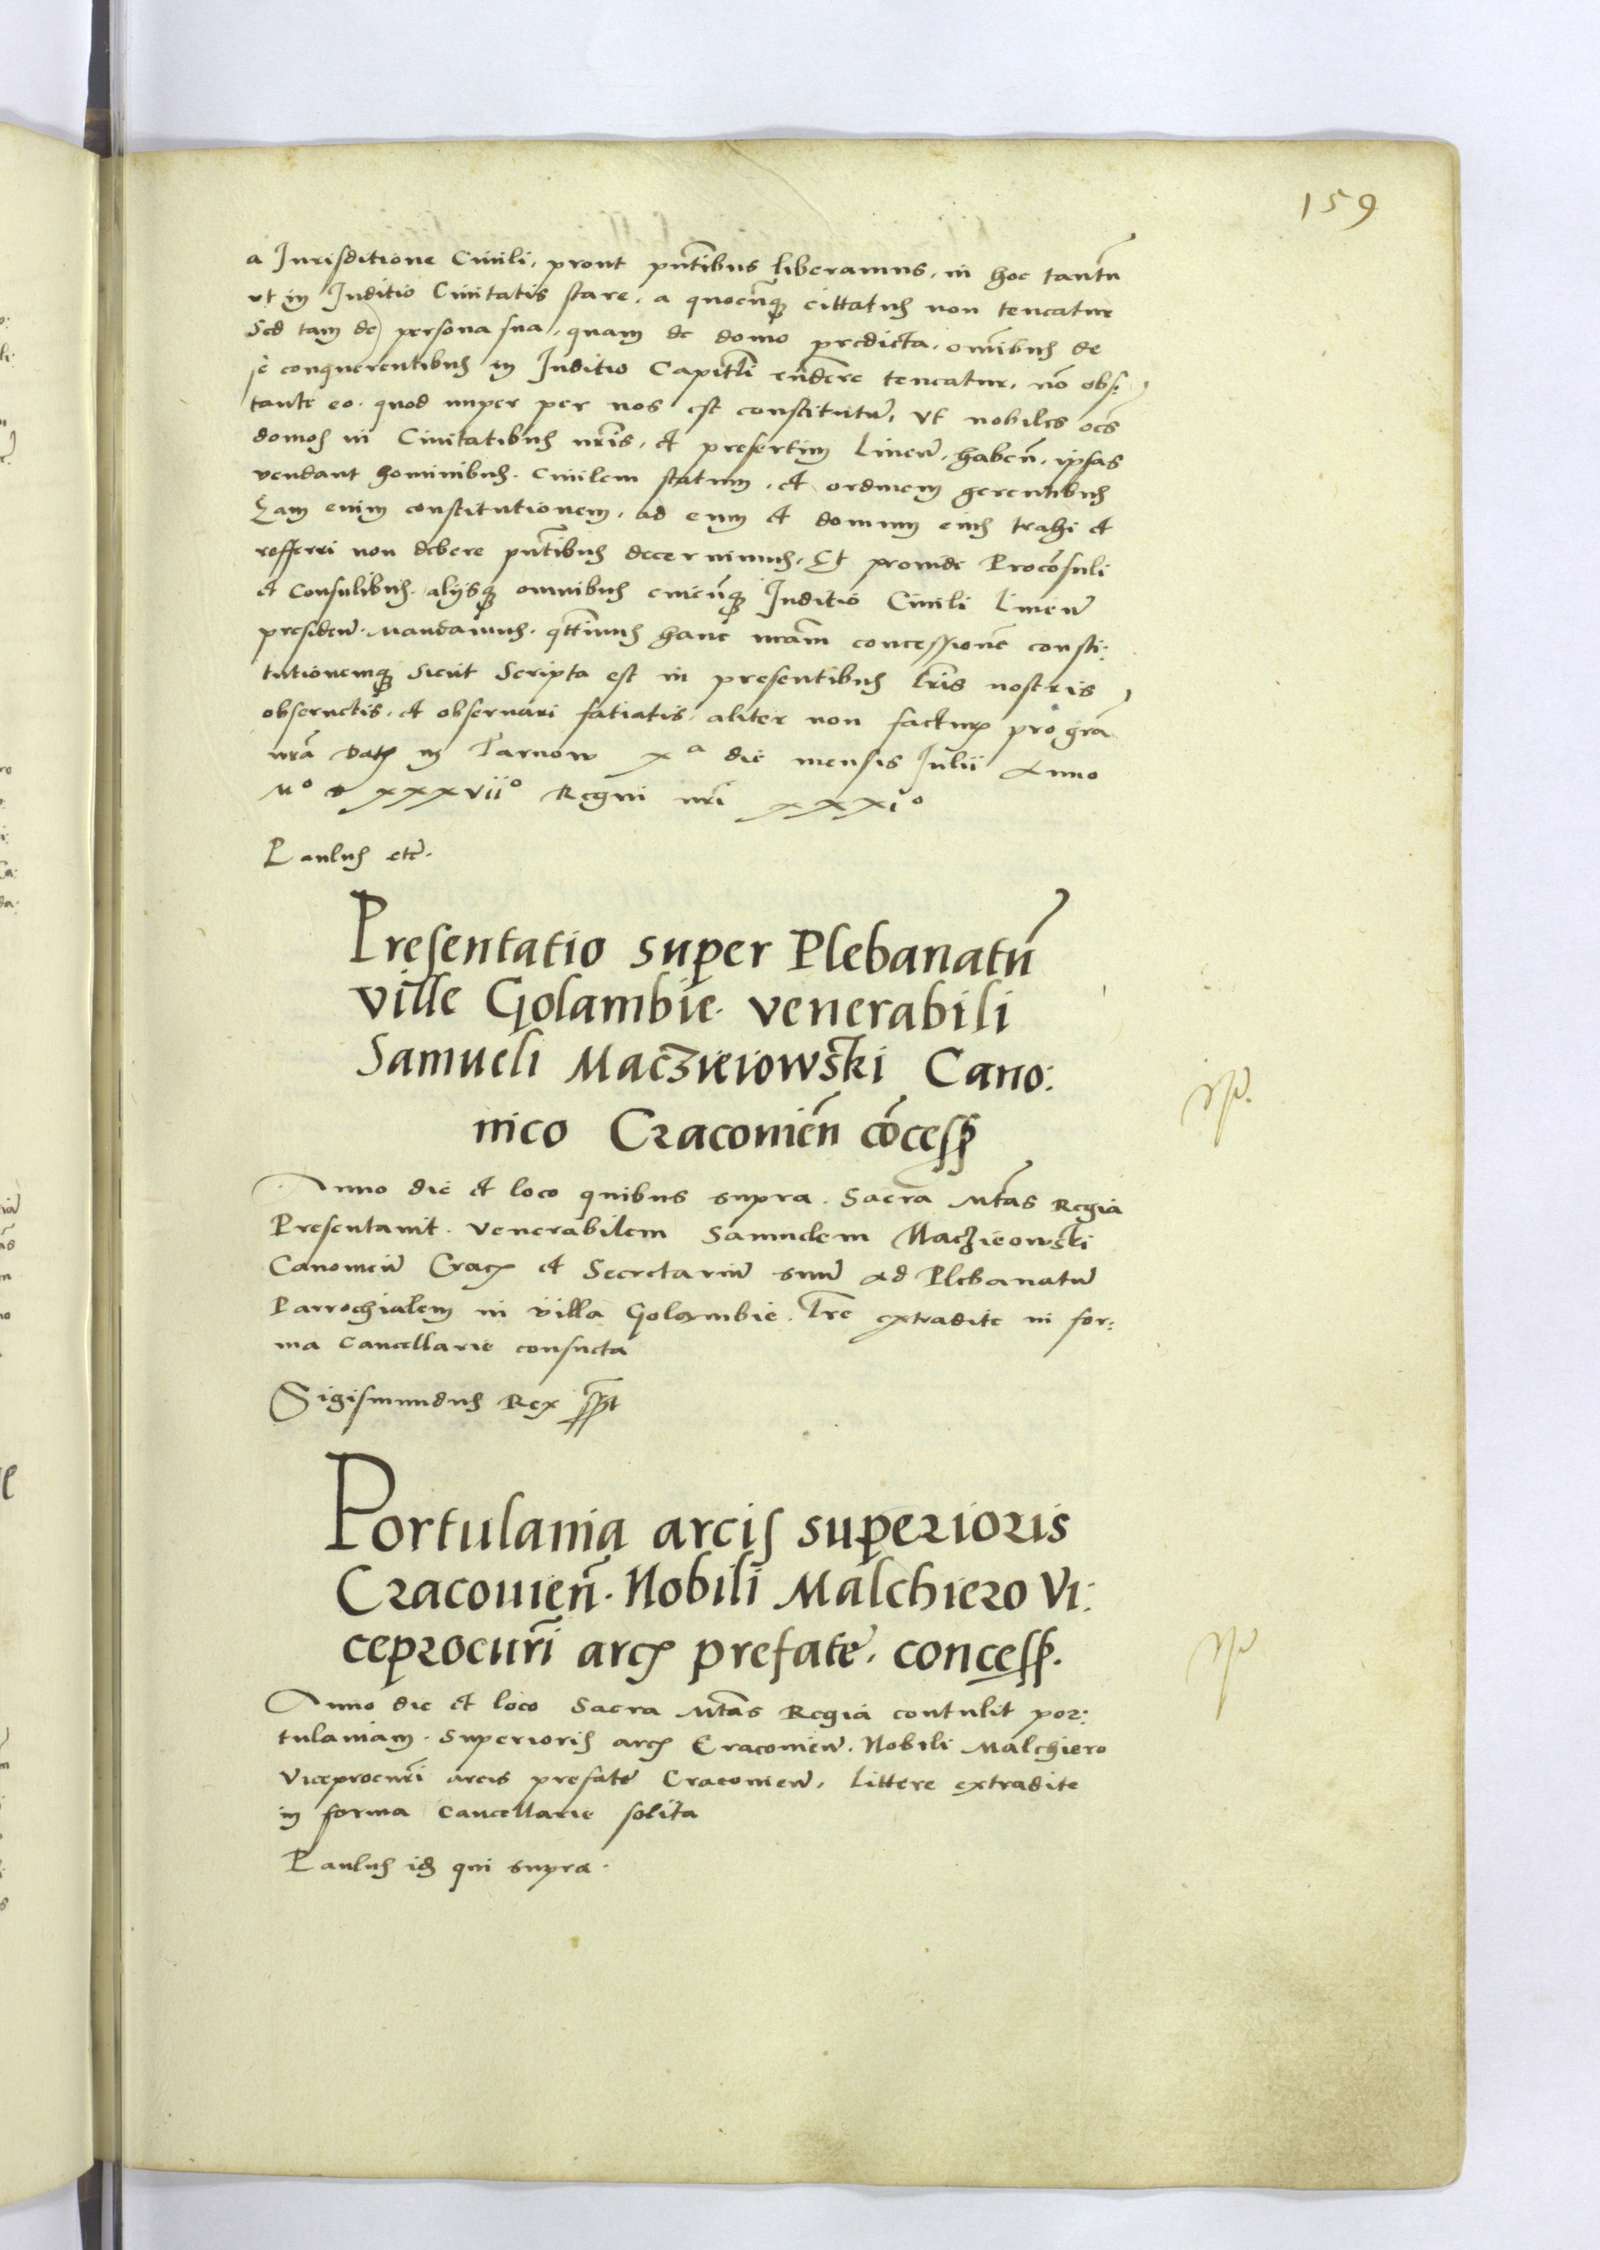 159
a Jurisditione Ciuili, prout pntibus liberamus, in hoc tantũ
vt in Juditio Ciuitatis stare, a quocũq cittatus non teneatur
Sed tam de persona sua, quam de domo predicta, omnibus de
se conquerentibus in Juditio Capitli rñdere teneatur, nõ obs:
tante eo quod nuper per nos est constitutũ, vt nobiles oẽs
domos in Ciuitatibus nris, et presertim Liueñ, habeñ, ipsas
vendant hominibus ciuilem statum, et ordinem gerentibus
Eam enim constitutionem, ad eum et domum eius trahi et
refferri non debere pntibus decernimus, Et proinde Procõsuli
et Consulibus alijsq omnibus cuicũq Juditio Ciuili
presideñ mandamus, qttinus hanc nram concessionẽ consti:
tutionemq sicut Scripta est in presentibus lris nostris
obseruetis, et obseruari fatiatis, aliter non factur pro gra
nra Dat in Tarnow xa die mensis Julii Anno
Mo D xxxviio Regni nri xxxio
Paulus etc.
Presentatio super Plebanatũ
ville Golambie venerabili
Samueli Maczieiowski Cano:
nico Cracovieñ cõcess
Anno die et loco quibus supra Sacra Mtas Regia
Presentauit venerabilem Samuelem Maczieowski
Canonicũ Crac et Secretariũ suũ ad Plebanatũ
Parrochialem in villa Golambie. Lre extradite in for:
ma Cancellarie consueta
Sigismundus Rex sspt
Portulania arcis superioris
Cracouieñ. Nobili Malchiero Vi:
ceprocuri arc prefate. concess.
Anno die et loco Sacra Mtas Regia contulit por:
tulaniam superioris arc Cracouieñ. Nobili Malchiero
Viceprocuri arcis prefate Cracouieñ. Littere extradite
in forma Cancellarie solita
Paulus id qui supra.